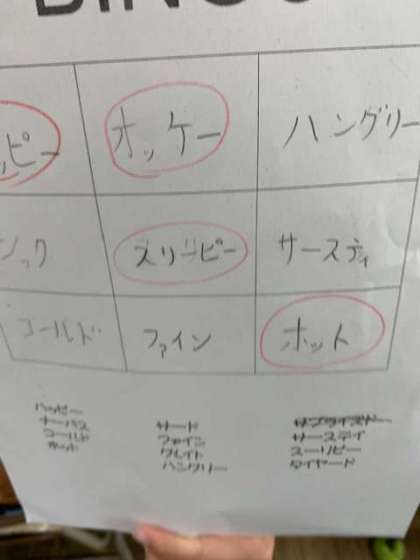 BINGO
ッピー オッケー ハングリー
ック スリーピー サースティ
コールド ファイン ホット
ハッピー
ナーバス
コールド
ホット
サード
ファイン
グレイト
ハングリー
サプライズド
サースティ
スリーピー
タイヤード